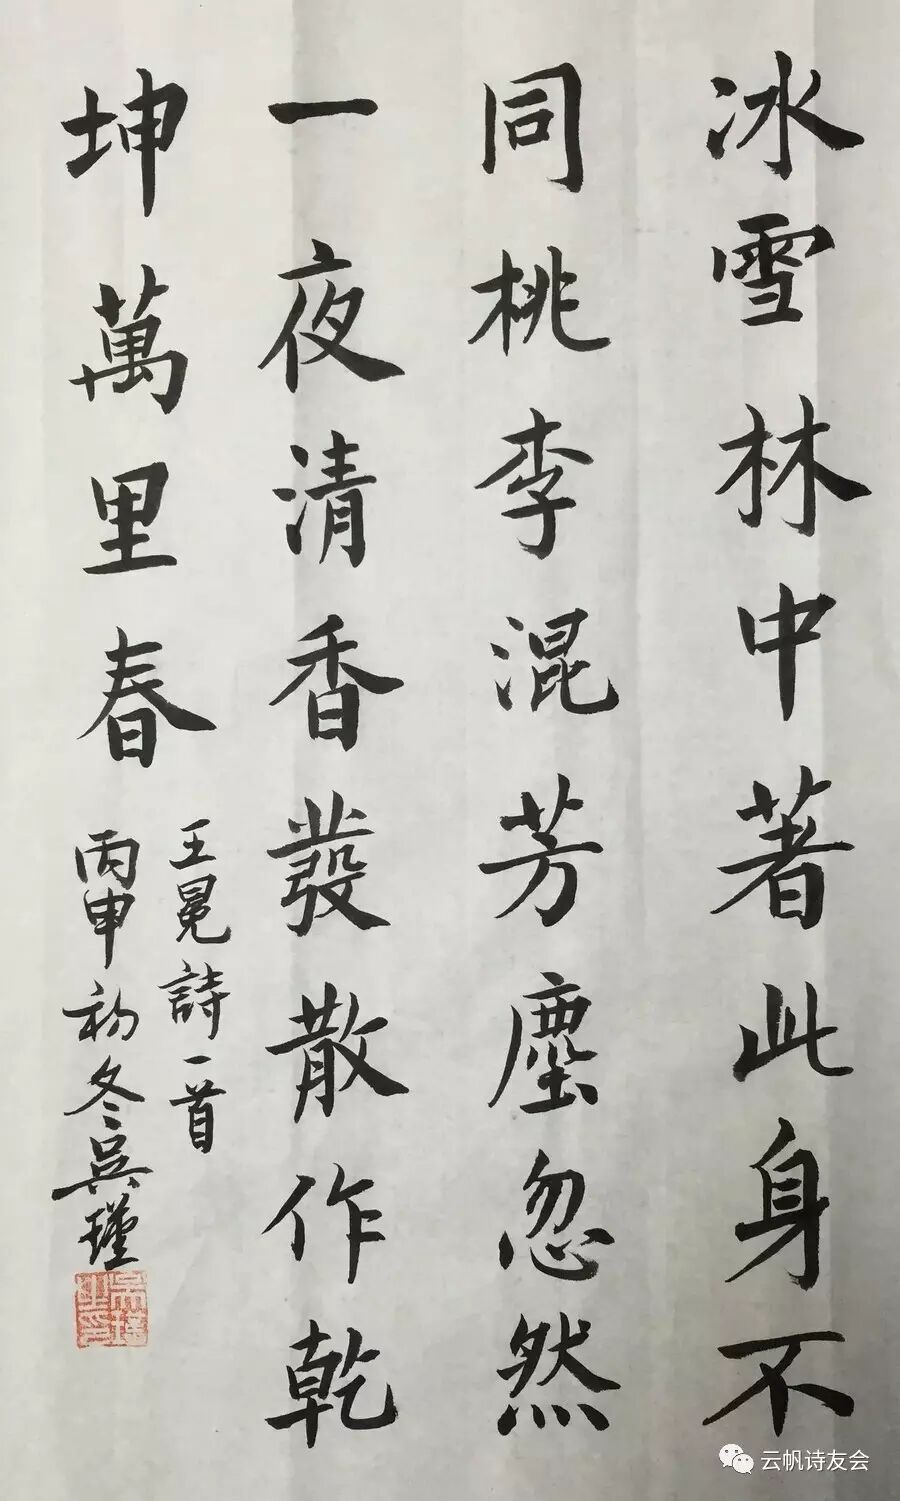 冰雪林中著此身不
同桃李混芳塵忽然
一夜清香發散作乾
坤萬里春
王冕詩一首
丙申初冬吳瑾
云帆诗友会